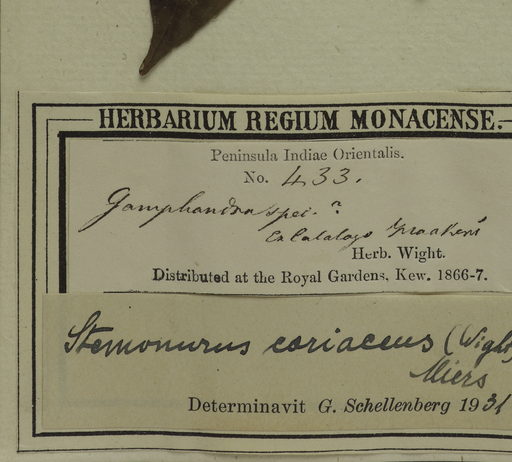 HERBARIUM REGIUM MONACENSE.
Peninsula Indiae Orientalis.
No. 433.
Gomphandra spec. ?
Ex Catalogo
Herb. Wight.
Distributed at the Royal Gardens, Kew. 1866-7.
Stemonurus coriaceus (Wight)
Miers
Determinavit G. Schellenberg 1931